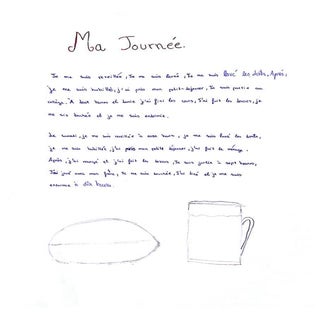 Ma Journée.
Je me suis réveillée, Je me suis levée, Je me suis lavé les dents, Après,
je me suis habillée, j'ai pris mon petit-déjeuner, Je suis partie au
collège. A heures et j'ai fini les cours, J'ai fait les devoirs, je
me suis couchée et je me suis endormie.
Le samedi, je me suis réveillée à onze heures, je me suis lavé les dents,
je me suis habillée, j'ai pris mon petit déjeuner, j'ai fait le ménage.
Après j'ai mangé et j'ai fait les devoirs, Je suis sortie à sept heures,
J'ai joué avec mon frère, Je me suis couchée, J'ai lu et je me suis
endormie à dix heures.